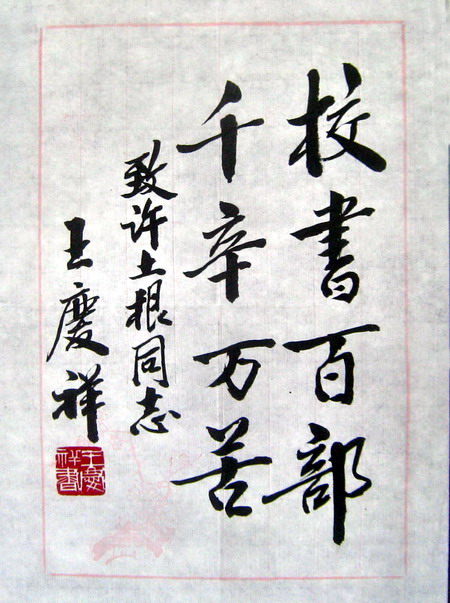 校書百部
千辛万苦
致许土根同志
王慶祥
王慶祥書